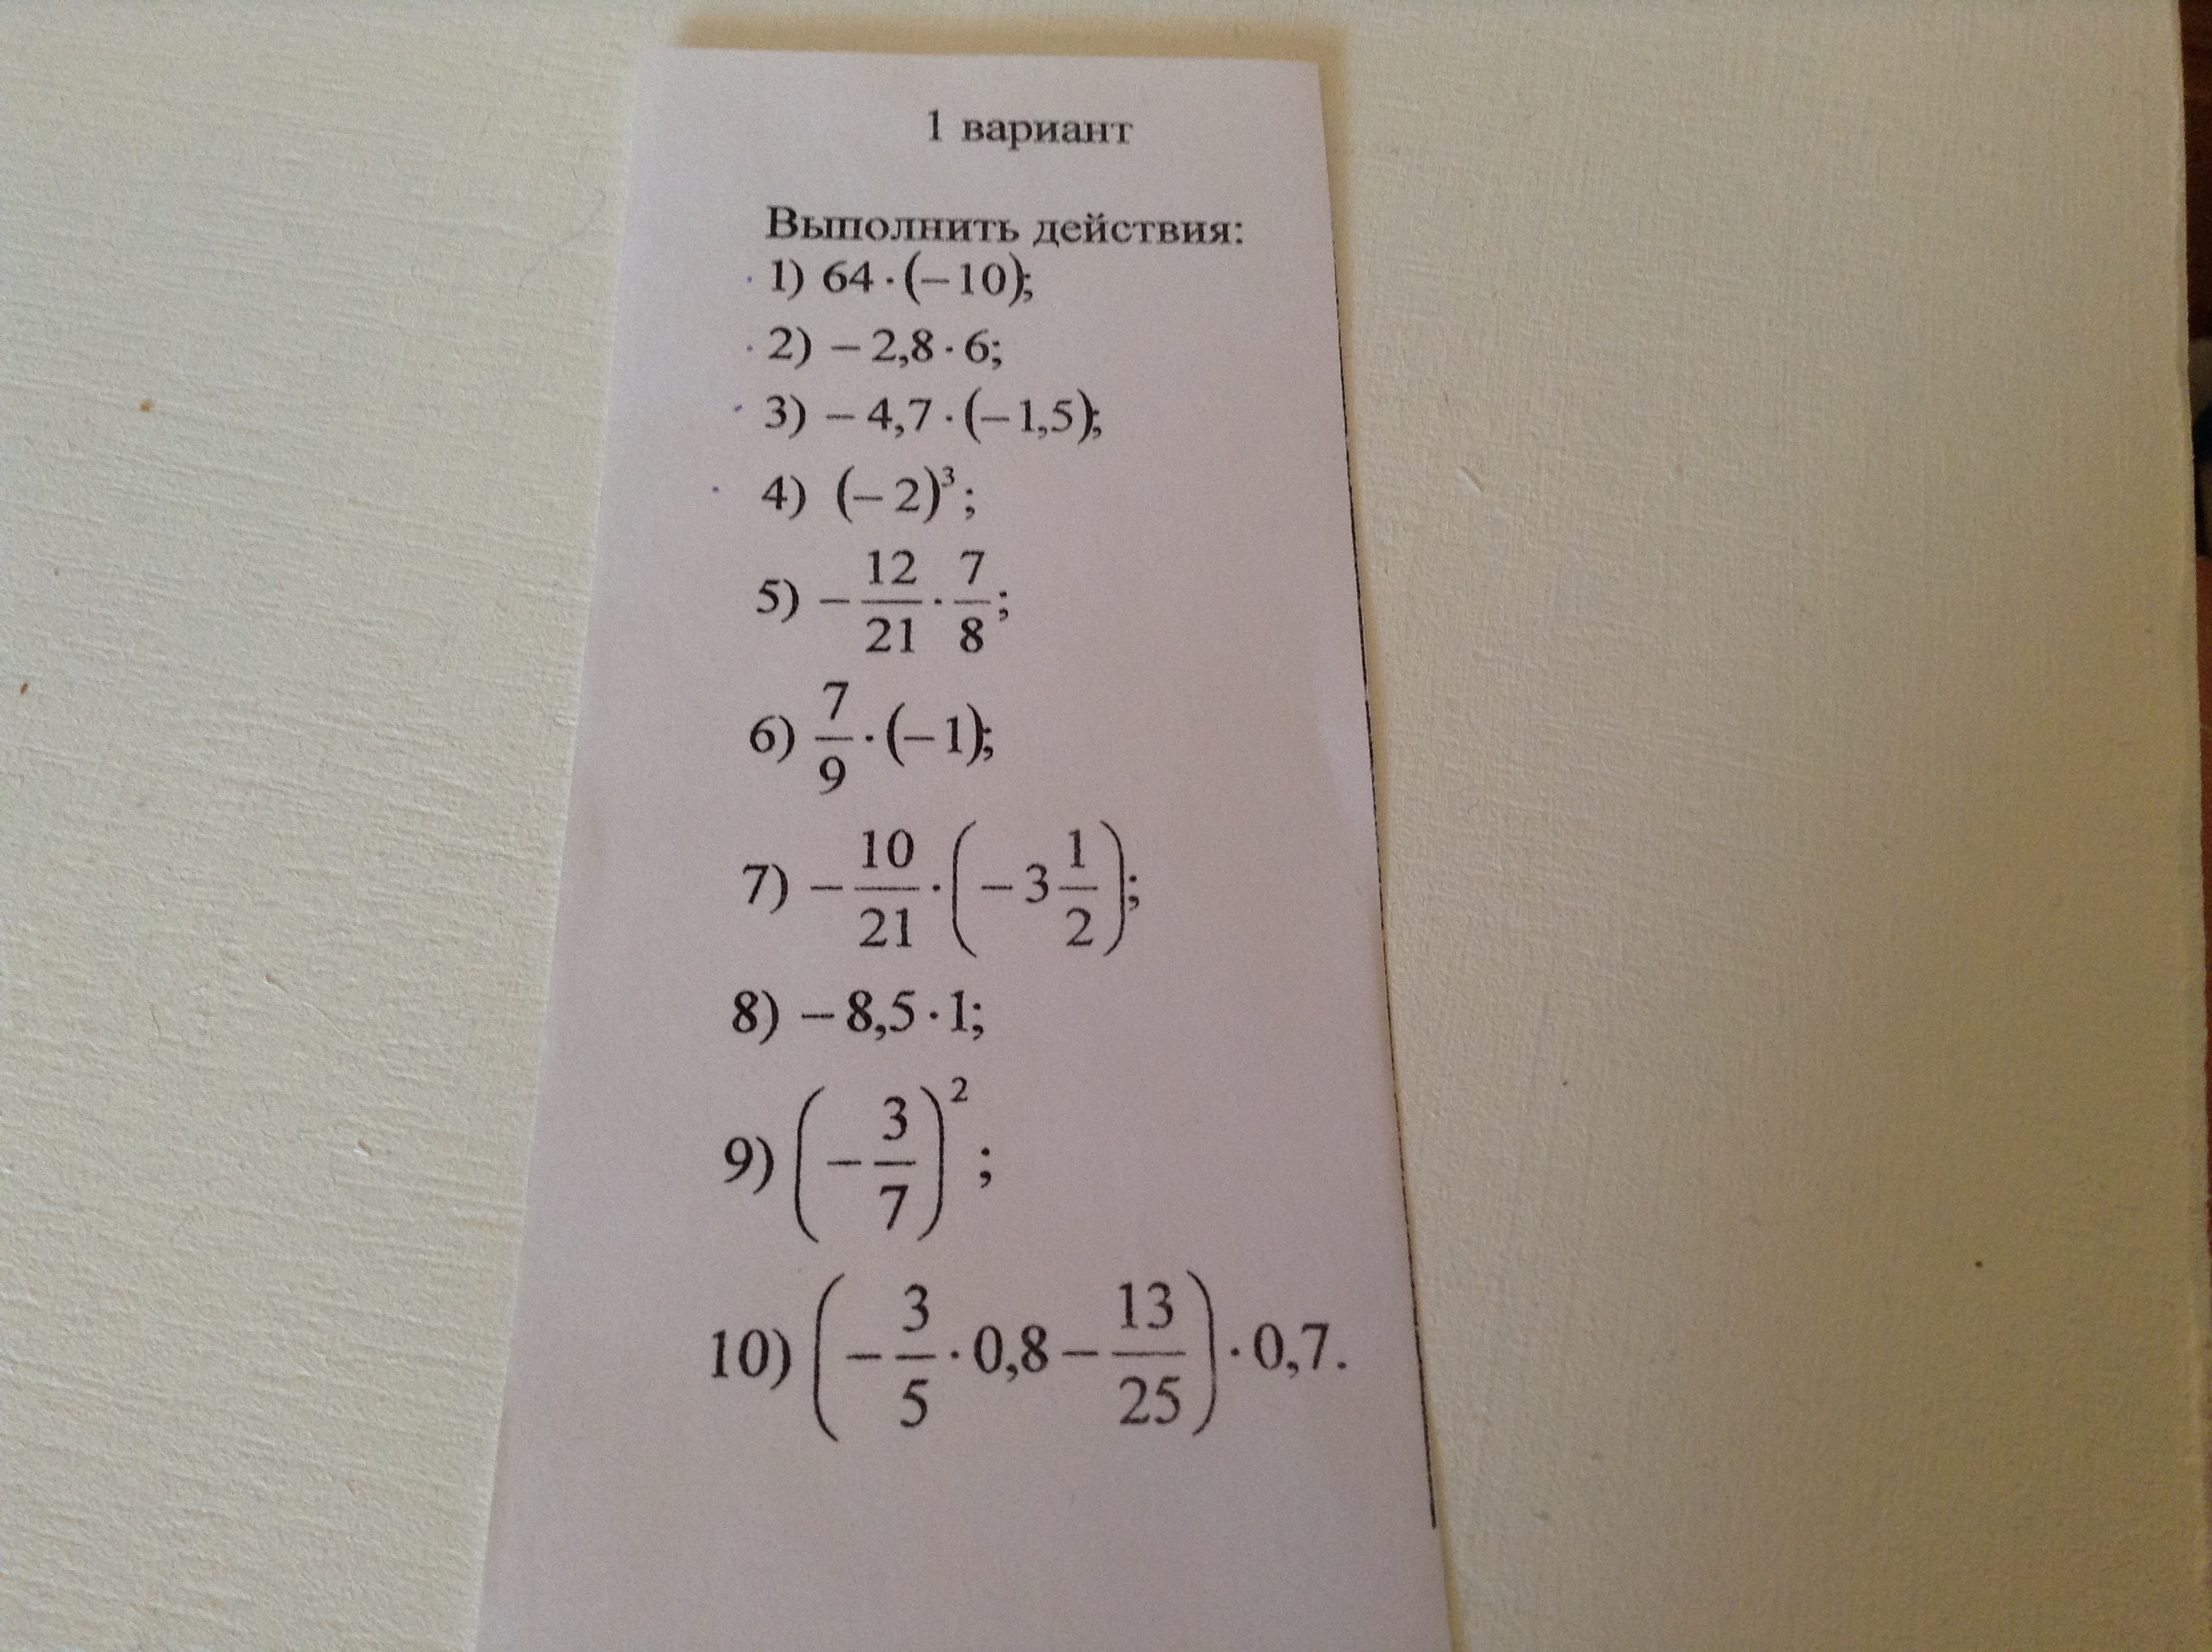 1 вариант
Выполнить действия:
1) 64·(−10);
2) −2,8·6;
3) −4,7·(−1,5);
4) (−2)³;
5) −12/21·7/8;
6) 7/9·(−1);
7) −10/21·(−3 1/2);
8) −8,5·1;
9) (−3/7)²;
10) (−3/5·0,8−13/25)·0,7.